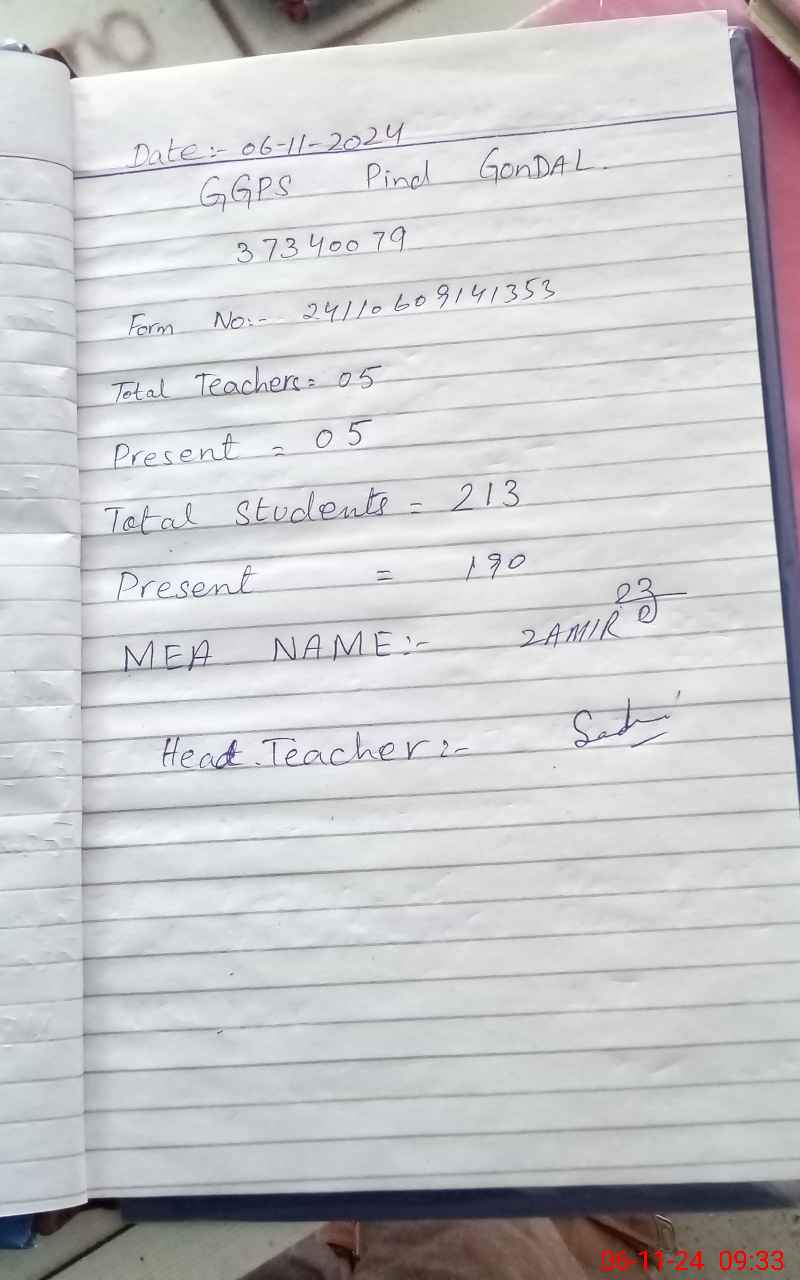 Date:- 06-11-2024
GGPS Pind GonDAL.
37340079
Form No:- 24110609141353
Total Teachers = 05
Present = 05
Total Students = 213
Present = 190
MEA NAME:- ZAMIR
Head.Teacher:-
06-11-24 09:33